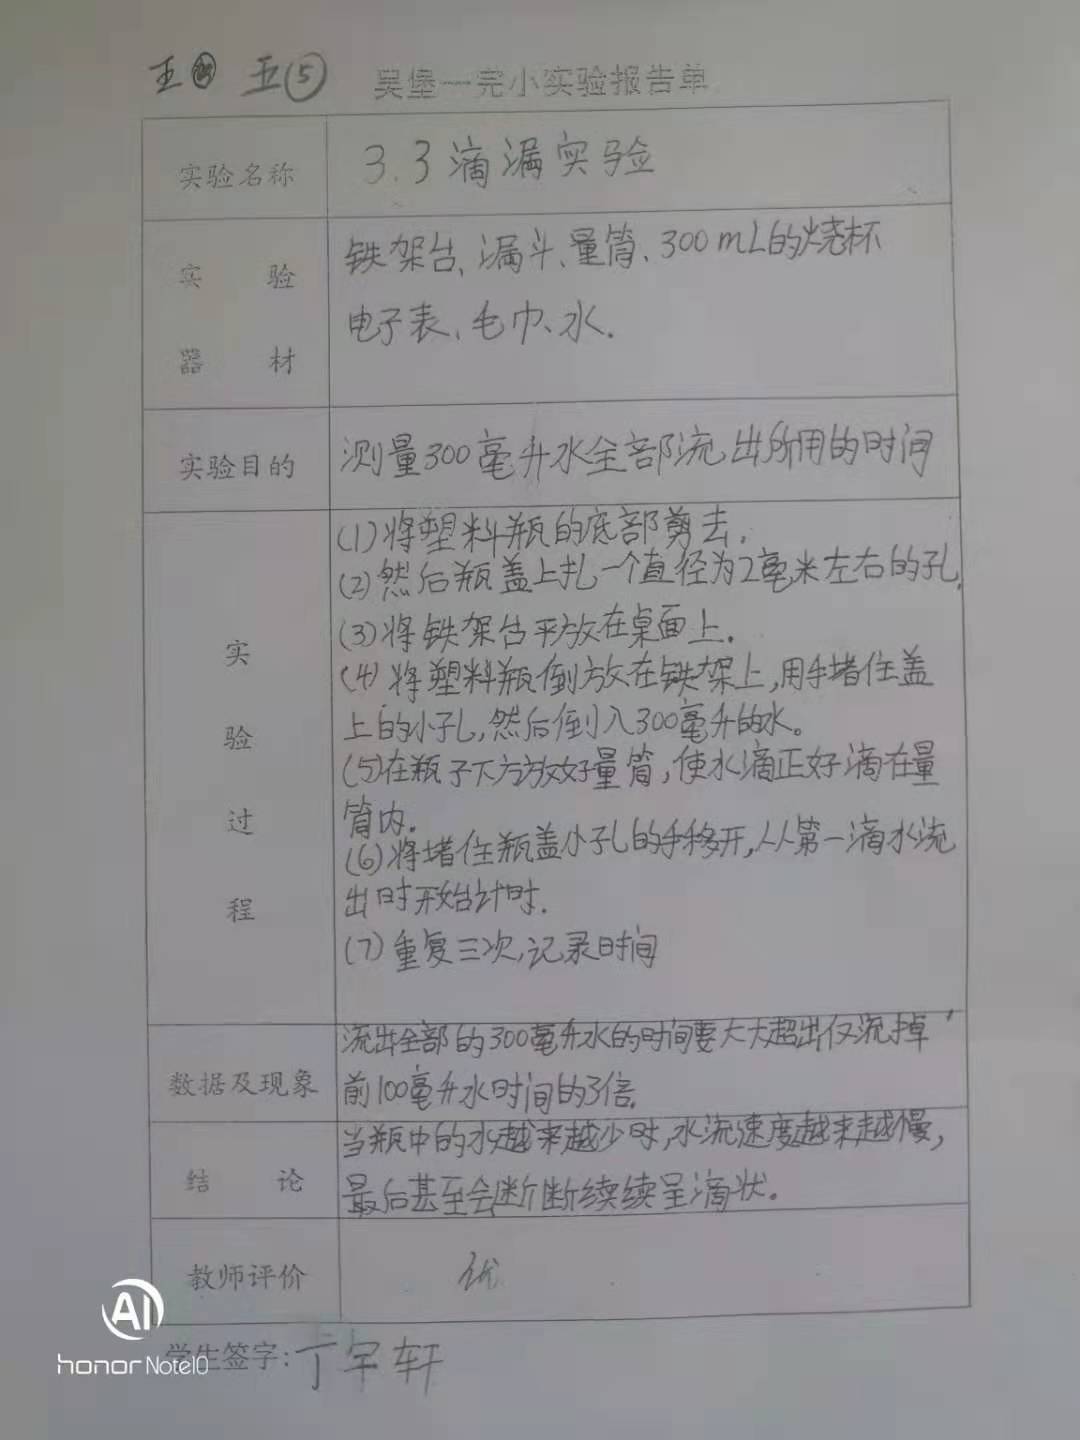 五⑤ 吴堡一完小实验报告单
实验名称 3.3滴漏实验
实验器材 铁架台、漏斗、量筒、300mL的烧杯
电子表、毛巾、水.
实验目的 测量300毫升水全部流出所用的时间
实验过程 (1)将塑料瓶的底部剪去.
(2)然后瓶盖上扎一个直径为2毫米左右的孔.
(3)将铁架台平放在桌面上.
(4)将塑料瓶倒放在铁架上,用手堵住盖
上的小孔,然后倒入300毫升的水。
(5)在瓶子下方放好量筒,使水滴正好滴在量
筒内.
(6)将堵住瓶盖小孔的手移开,从第一滴水流
出时开始计时.
(7)重复三次,记录时间
数据及现象 流出全部的300毫升水的时间要大大超出仅流掉
前100毫升水时间的3倍.
结论 当瓶中的水越来越少时,水流速度越来越慢,
最后甚至会断断续续呈滴状。
教师评价 优
学生签字:丁宇轩
AI
honor Note10